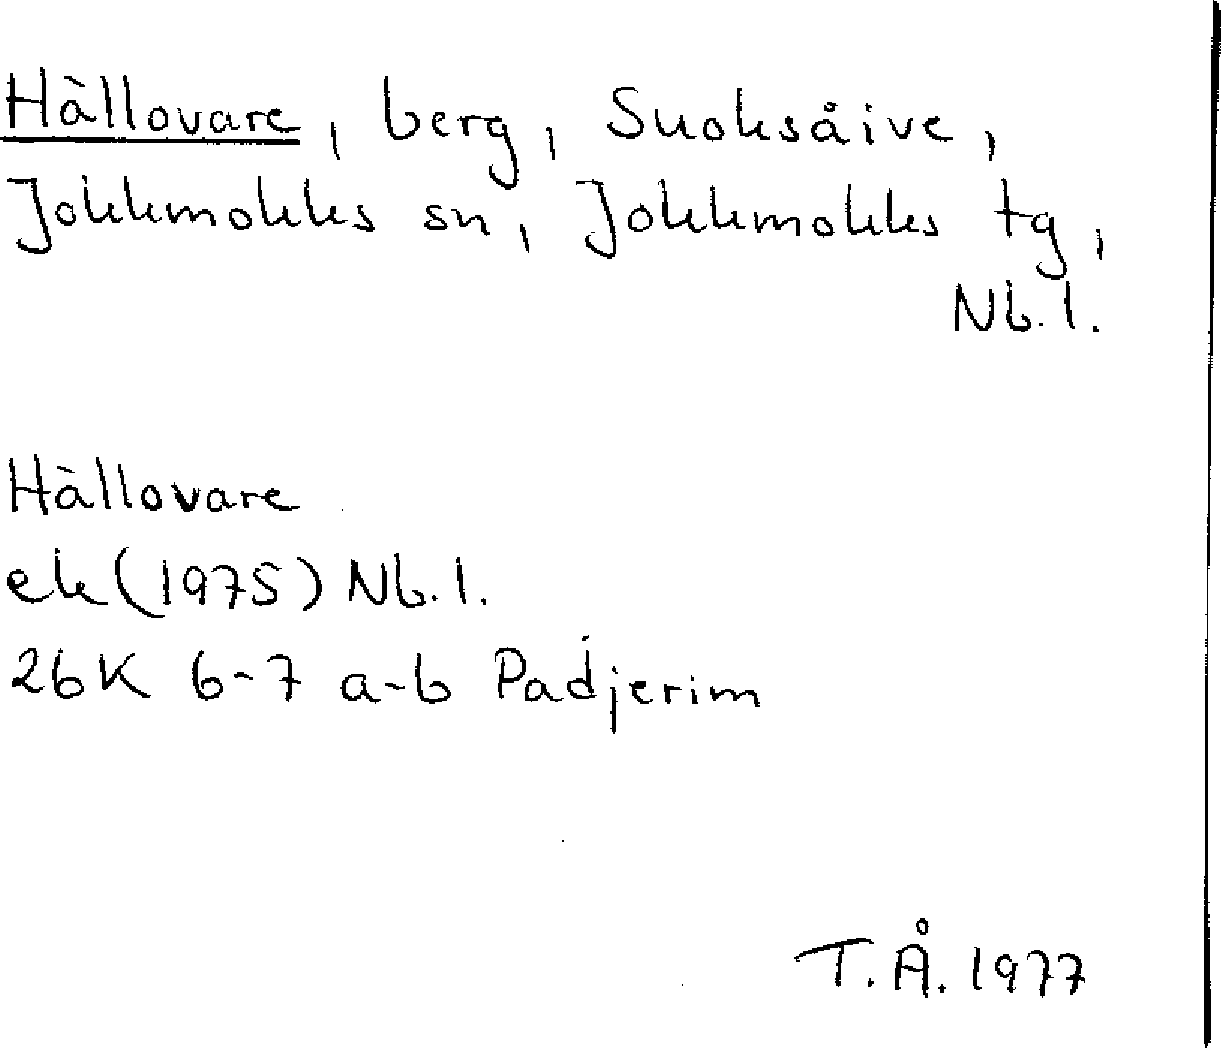 Hàllovare, berg, Suoksåive,
Jokkmokks sn, Jokkmokks tg,
Nb. l.
Hàllovare
ek (1975) Nb. l.
26K 6-7 a-b Padjerim
T.Å. 1977